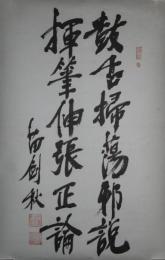 鼓舌掃蕩邪說
揮筆伸張正論
劍秋